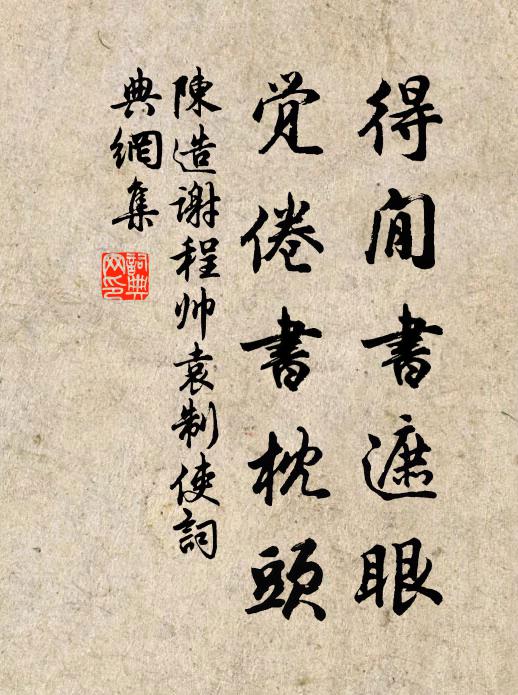 得閒書遮眼
覺倦書枕頭
陳造謝程帅袁制使詞
典網集
詞典網印